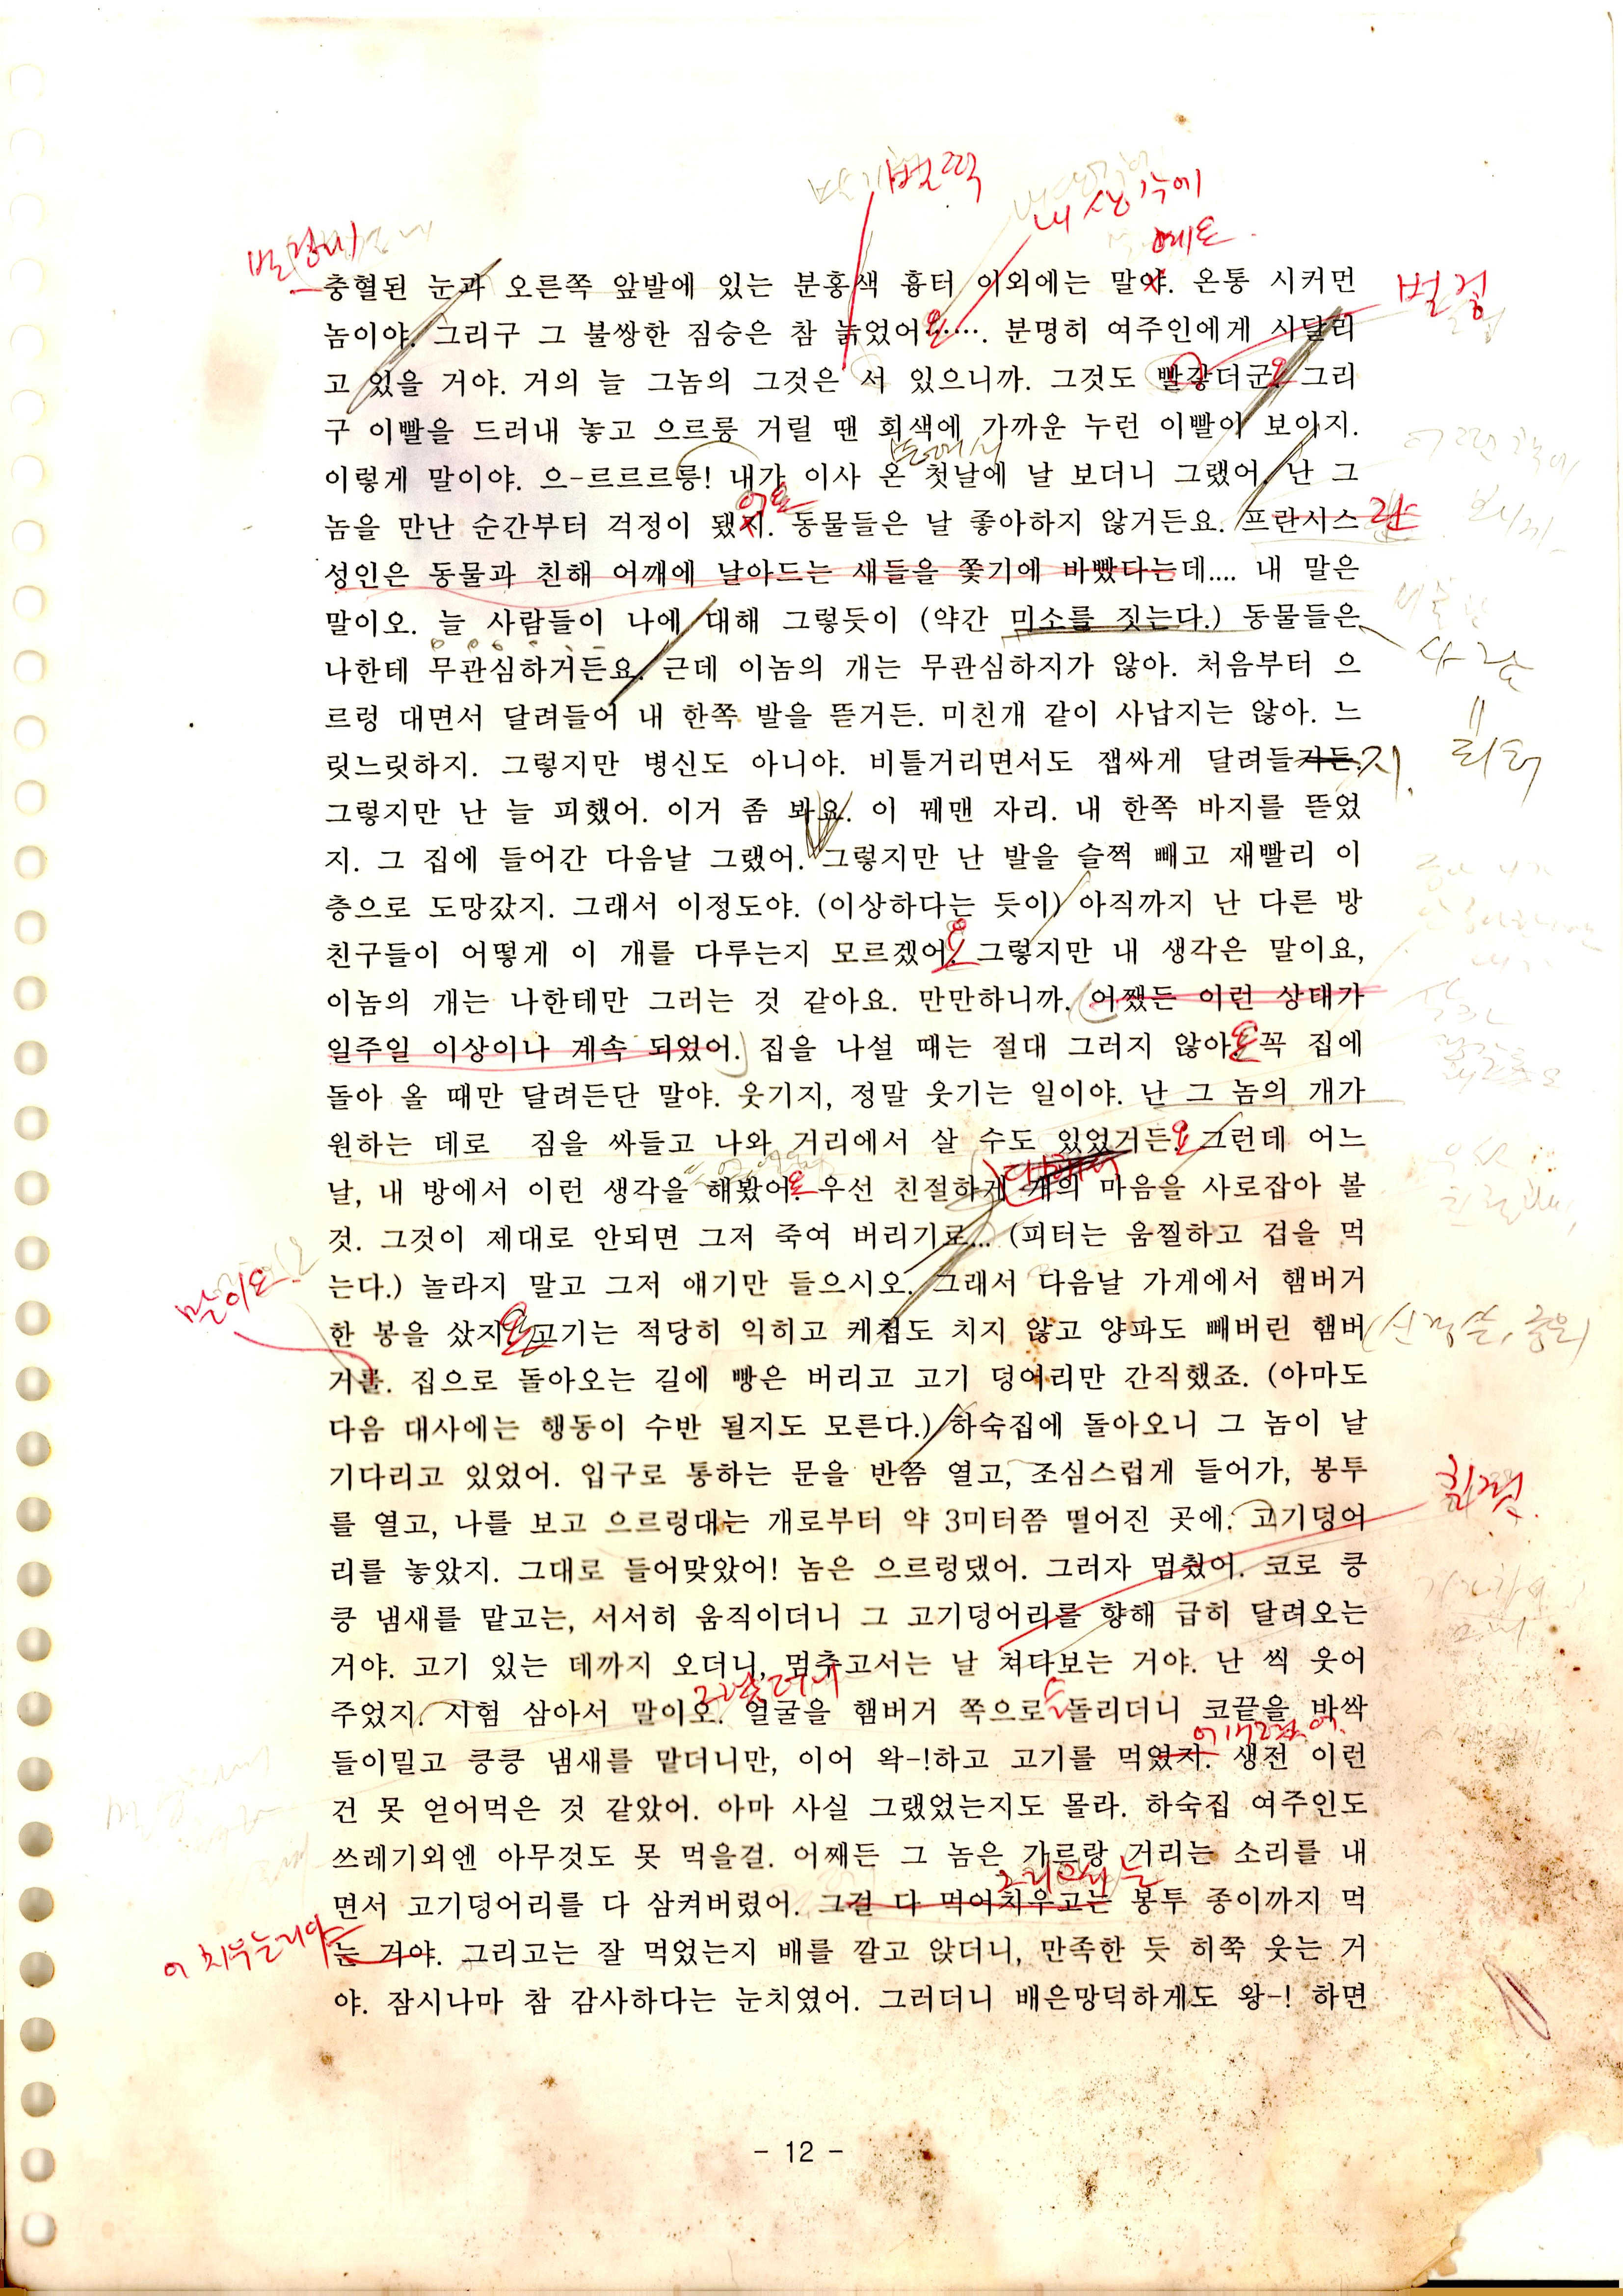 벌떡
내 생각에
벌겋게
예요.
충혈된 눈과 오른쪽 앞발에 있는 분홍색 흉터 이외에는 말야. 온통 시커먼
벌겋
놈이야. 그리구 그 불쌍한 짐승은 참 늙었어요……. 분명히 여주인에게 시달리
고 있을 거야. 거의 늘 그놈의 그것은 서 있으니까. 그것도 빨갛더군요 그리
구 이빨을 드러내 놓고 으르릉 거릴 땐 회색에 가까운 누런 이빨이 보이지.
눈에서
이렇게 말이야. 으-르르르릉! 내가 이사 온 첫날에 날 보더니 그랬어. 난 그
어요
놈을 만난 순간부터 걱정이 됐지. 동물들은 날 좋아하지 않거든요. 프란시스
성인은 동물과 친해 어깨에 날아드는 새들을 쫓기에 바빴다는데.... 내 말은
말이오. 늘 사람들이 나에 대해 그렇듯이 (약간 미소를 짓는다.) 동물들은
사람
나한테 무관심하거든요. 근데 이놈의 개는 무관심하지가 않아. 처음부터 으
르렁 대면서 달려들어 내 한쪽 발을 뜯거든. 미친개 같이 사납지는 않아. 느
릿느릿하지. 그렇지만 병신도 아니야. 비틀거리면서도 잽싸게 달려들거든. 지.
피터
그렇지만 난 늘 피했어. 이거 좀 봐요. 이 꿰맨 자리. 내 한쪽 바지를 뜯었
지. 그 집에 들어간 다음날 그랬어. 그렇지만 난 발을 슬쩍 빼고 재빨리 이
층으로 도망갔지. 그래서 이정도야. (이상하다는 듯이) 아직까지 난 다른 방
친구들이 어떻게 이 개를 다루는지 모르겠어요 그렇지만 내 생각은 말이요,
이놈의 개는 나한테만 그러는 것 같아요. 만만하니까. 어쨌든 이런 상태가
일주일 이상이나 계속 되었어. 집을 나설 때는 절대 그러지 않아요 꼭 집에
돌아 올 때만 달려든단 말야. 웃기지, 정말 웃기는 일이야. 난 그 놈의 개가
원하는 데로 짐을 싸들고 나와 거리에서 살 수도 있었거든요 그런데 어느
날, 내 방에서 이런 생각을 해봤어요 우선 친절하게 개의 마음을 사로잡아 볼
것. 그것이 제대로 안되면 그저 죽여 버리기로... (피터는 움찔하고 겁을 먹
는다.) 놀라지 말고 그저 얘기만 들으시오. 그래서 다음날 가게에서 햄버거
말이요
한 봉을 샀지요 고기는 적당히 익히고 케첩도 치지 않고 양파도 빼버린 햄버
거를. 집으로 돌아오는 길에 빵은 버리고 고기 덩어리만 간직했죠. (아마도
다음 대사에는 행동이 수반 될지도 모른다.) 하숙집에 돌아오니 그 놈이 날
기다리고 있었어. 입구로 통하는 문을 반쯤 열고, 조심스럽게 들어가, 봉투
를 열고, 나를 보고 으르렁대는 개로부터 약 3미터쯤 떨어진 곳에. 고기덩어
리를 놓았지. 그대로 들어맞았어! 놈은 으르렁댔어. 그러자 멈췄어. 코로 킁
킁 냄새를 맡고는, 서서히 움직이더니 그 고기덩어리를 향해 급히 달려오는
거야. 고기 있는 데까지 오더니, 멈추고서는 날 쳐다보는 거야. 난 씩 웃어
그랬더니
주었지. 시험 삼아서 말이오. 얼굴을 햄버거 쪽으로 돌리더니 코끝을 바싹
들이밀고 킁킁 냄새를 맡더니만, 이어 왁-!하고 고기를 먹었지. 생전 이런
건 못 얻어먹은 것 같았어. 아마 사실 그랬었는지도 몰라. 하숙집 여주인도
쓰레기외엔 아무것도 못 먹을걸. 어째든 그 놈은 가르랑 거리는 소리를 내
그리고서는
면서 고기덩어리를 다 삼켜버렸어. 그걸 다 먹어치우고는 봉투 종이까지 먹
어 치우는거야
는 거야. 그리고는 잘 먹었는지 배를 깔고 앉더니, 만족한 듯 히쭉 웃는 거
야. 잠시나마 참 감사하다는 눈치였어. 그러더니 배은망덕하게도 왕-! 하면
- 12 -